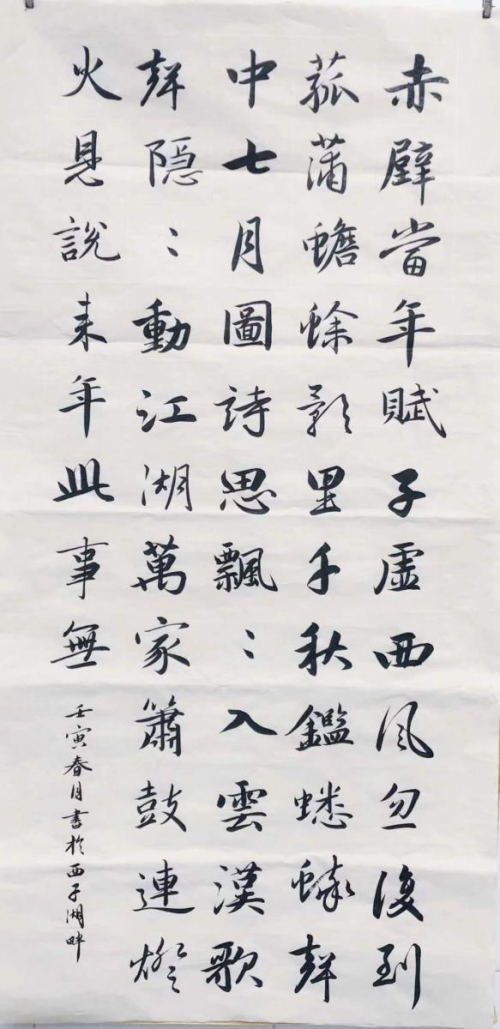 赤壁當年賦子虛西風忽復到
菰蒲蟾蜍影里千秋鑑蟋蟀聲
中七月圖詩思飄〻入雲漢歌
聲隐〻動江湖萬家簫鼓連燈
火見説来年此事無
壬寅春月書於西子湖畔